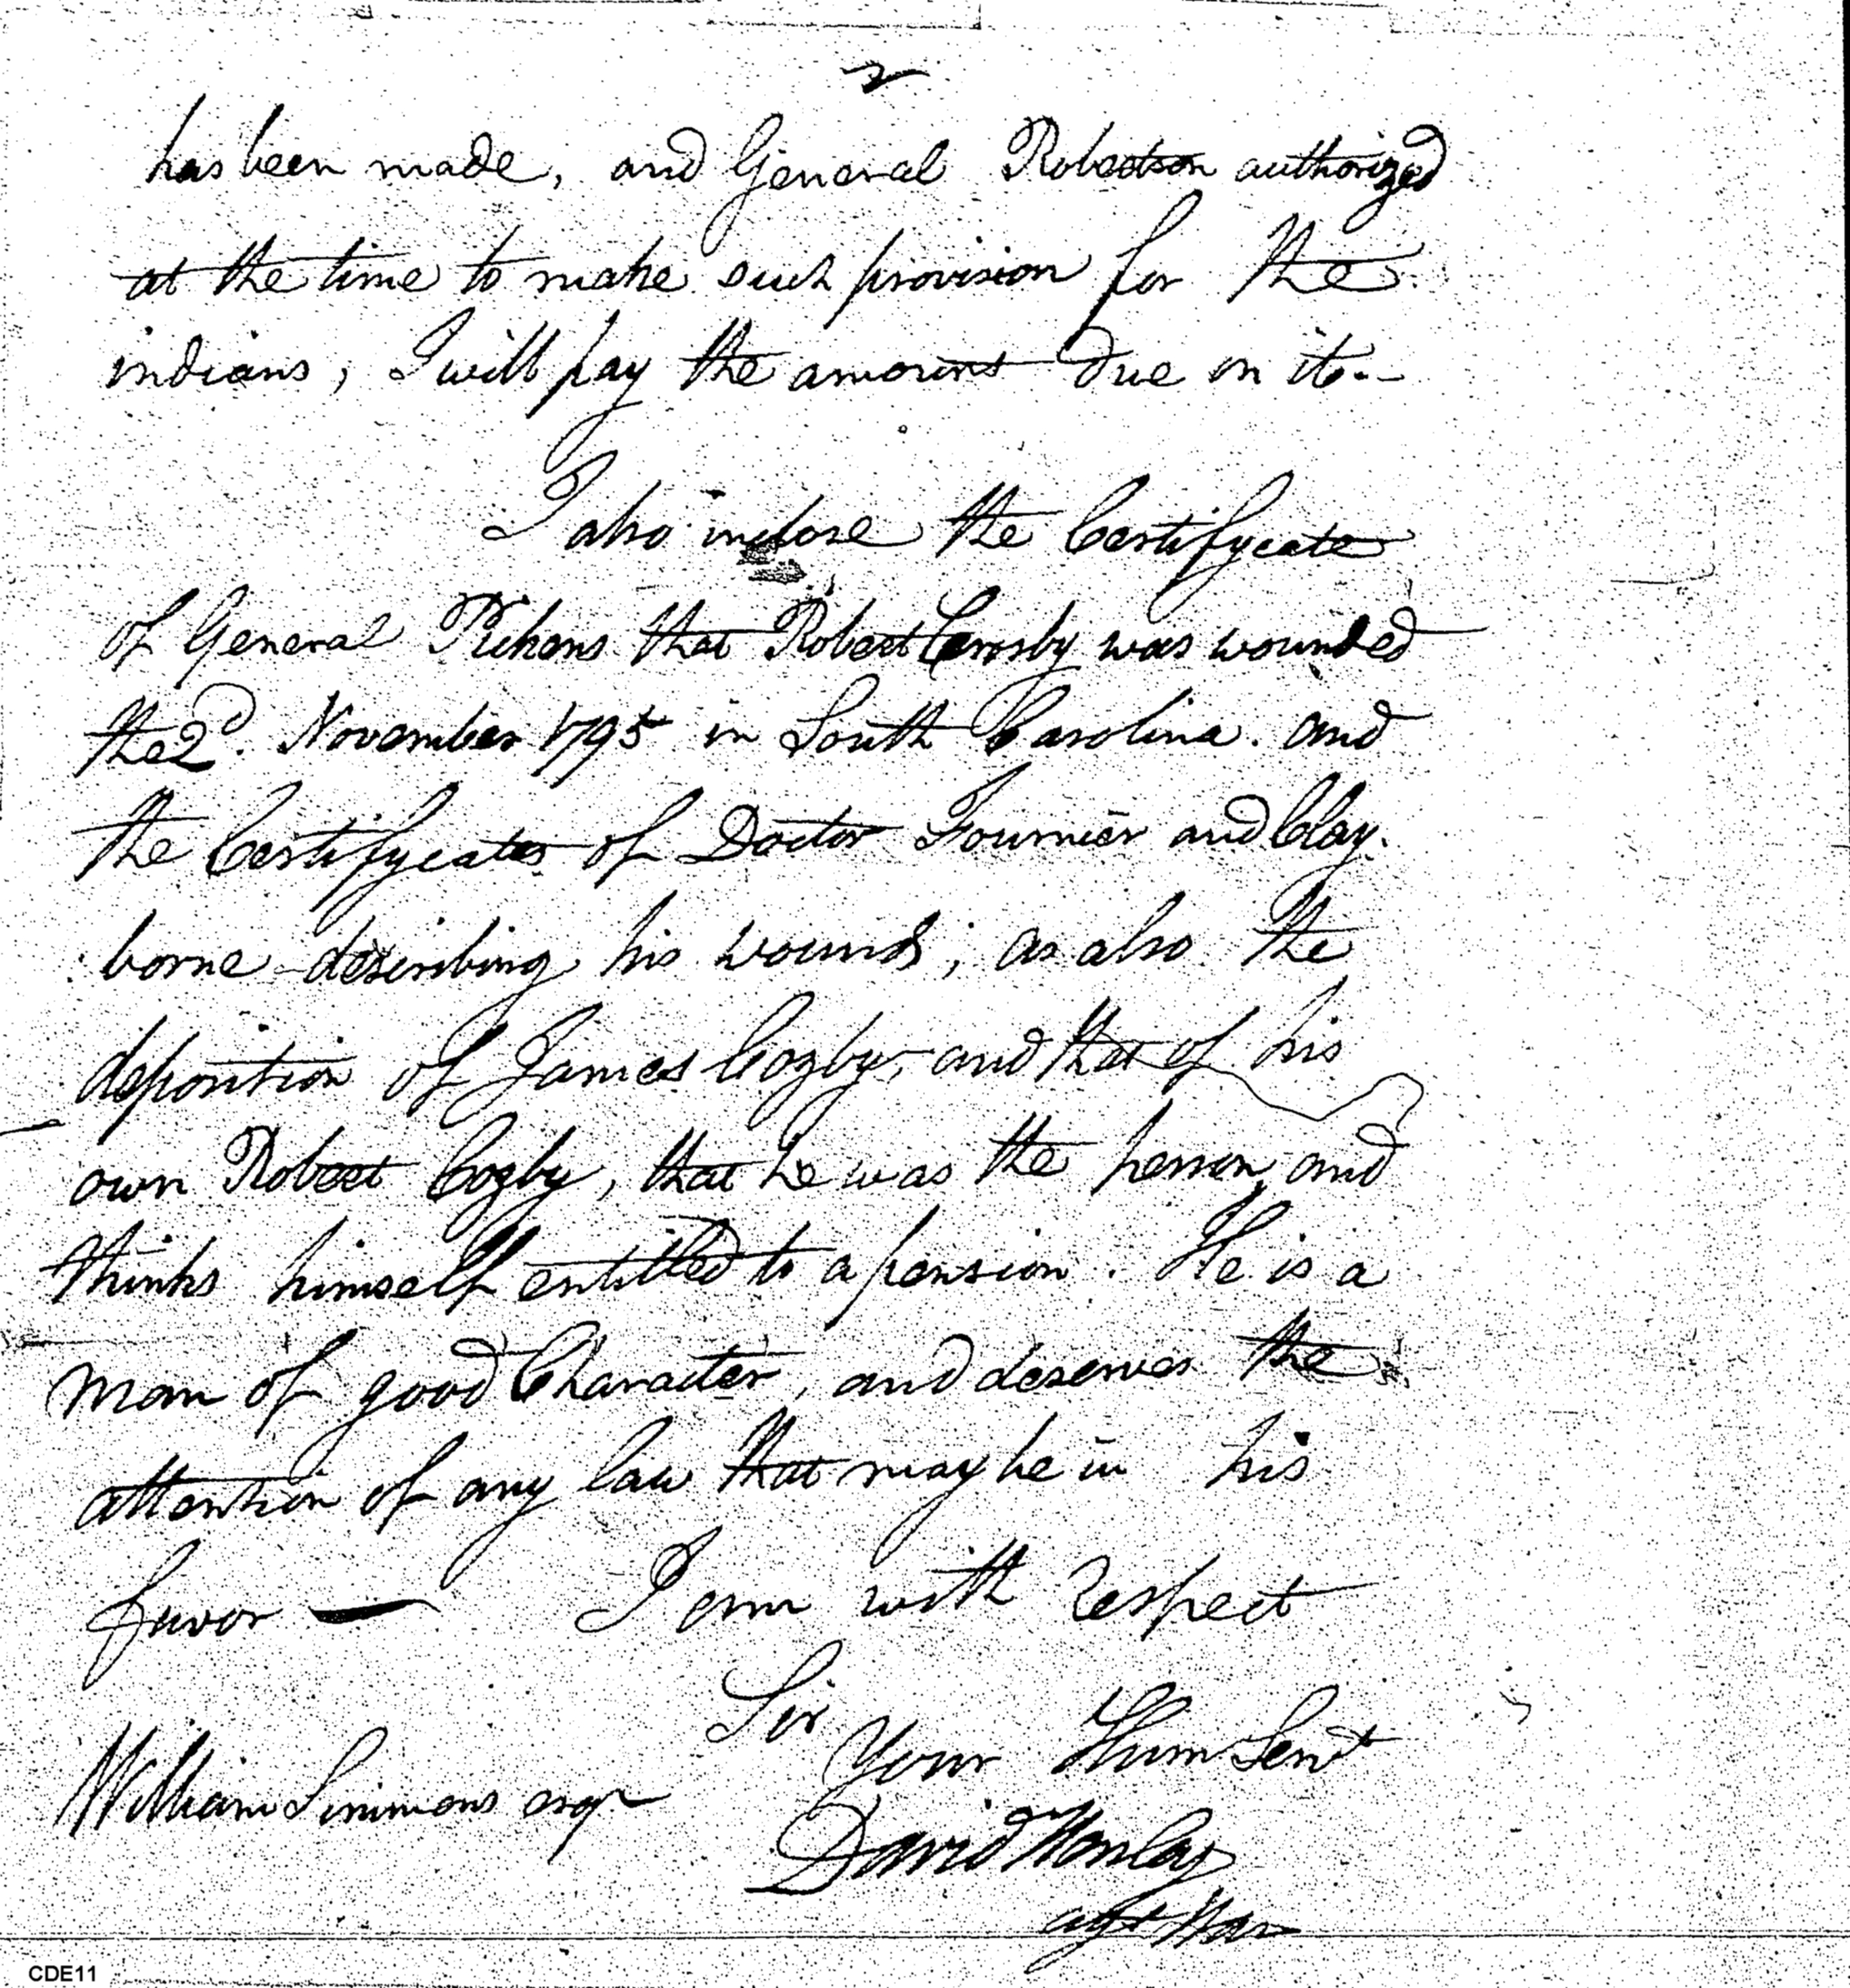 2
has been made, and General Robertson authorized
at the time to make such provision for the
indians, I will pay the amount due on it.-
I also inclose the Certifycate
of General Pickens that Robert Crosby was wounded
the 2d. November 1795 in South Carolina. and
the Certifycates of Doctor Fournier and Clay.
borne describing his wounds; as also the
deposition of James Cozby, and that of his
own Robert Cozby, that he was the person, and
thinks himself entitled to a pension. He is a
man of good Character, and deserves the
attention of any law that may be in his
favor — I am with respect
Sir
Your Hum Servt
William Simmons esqr
David Henley
agt War
CDE11